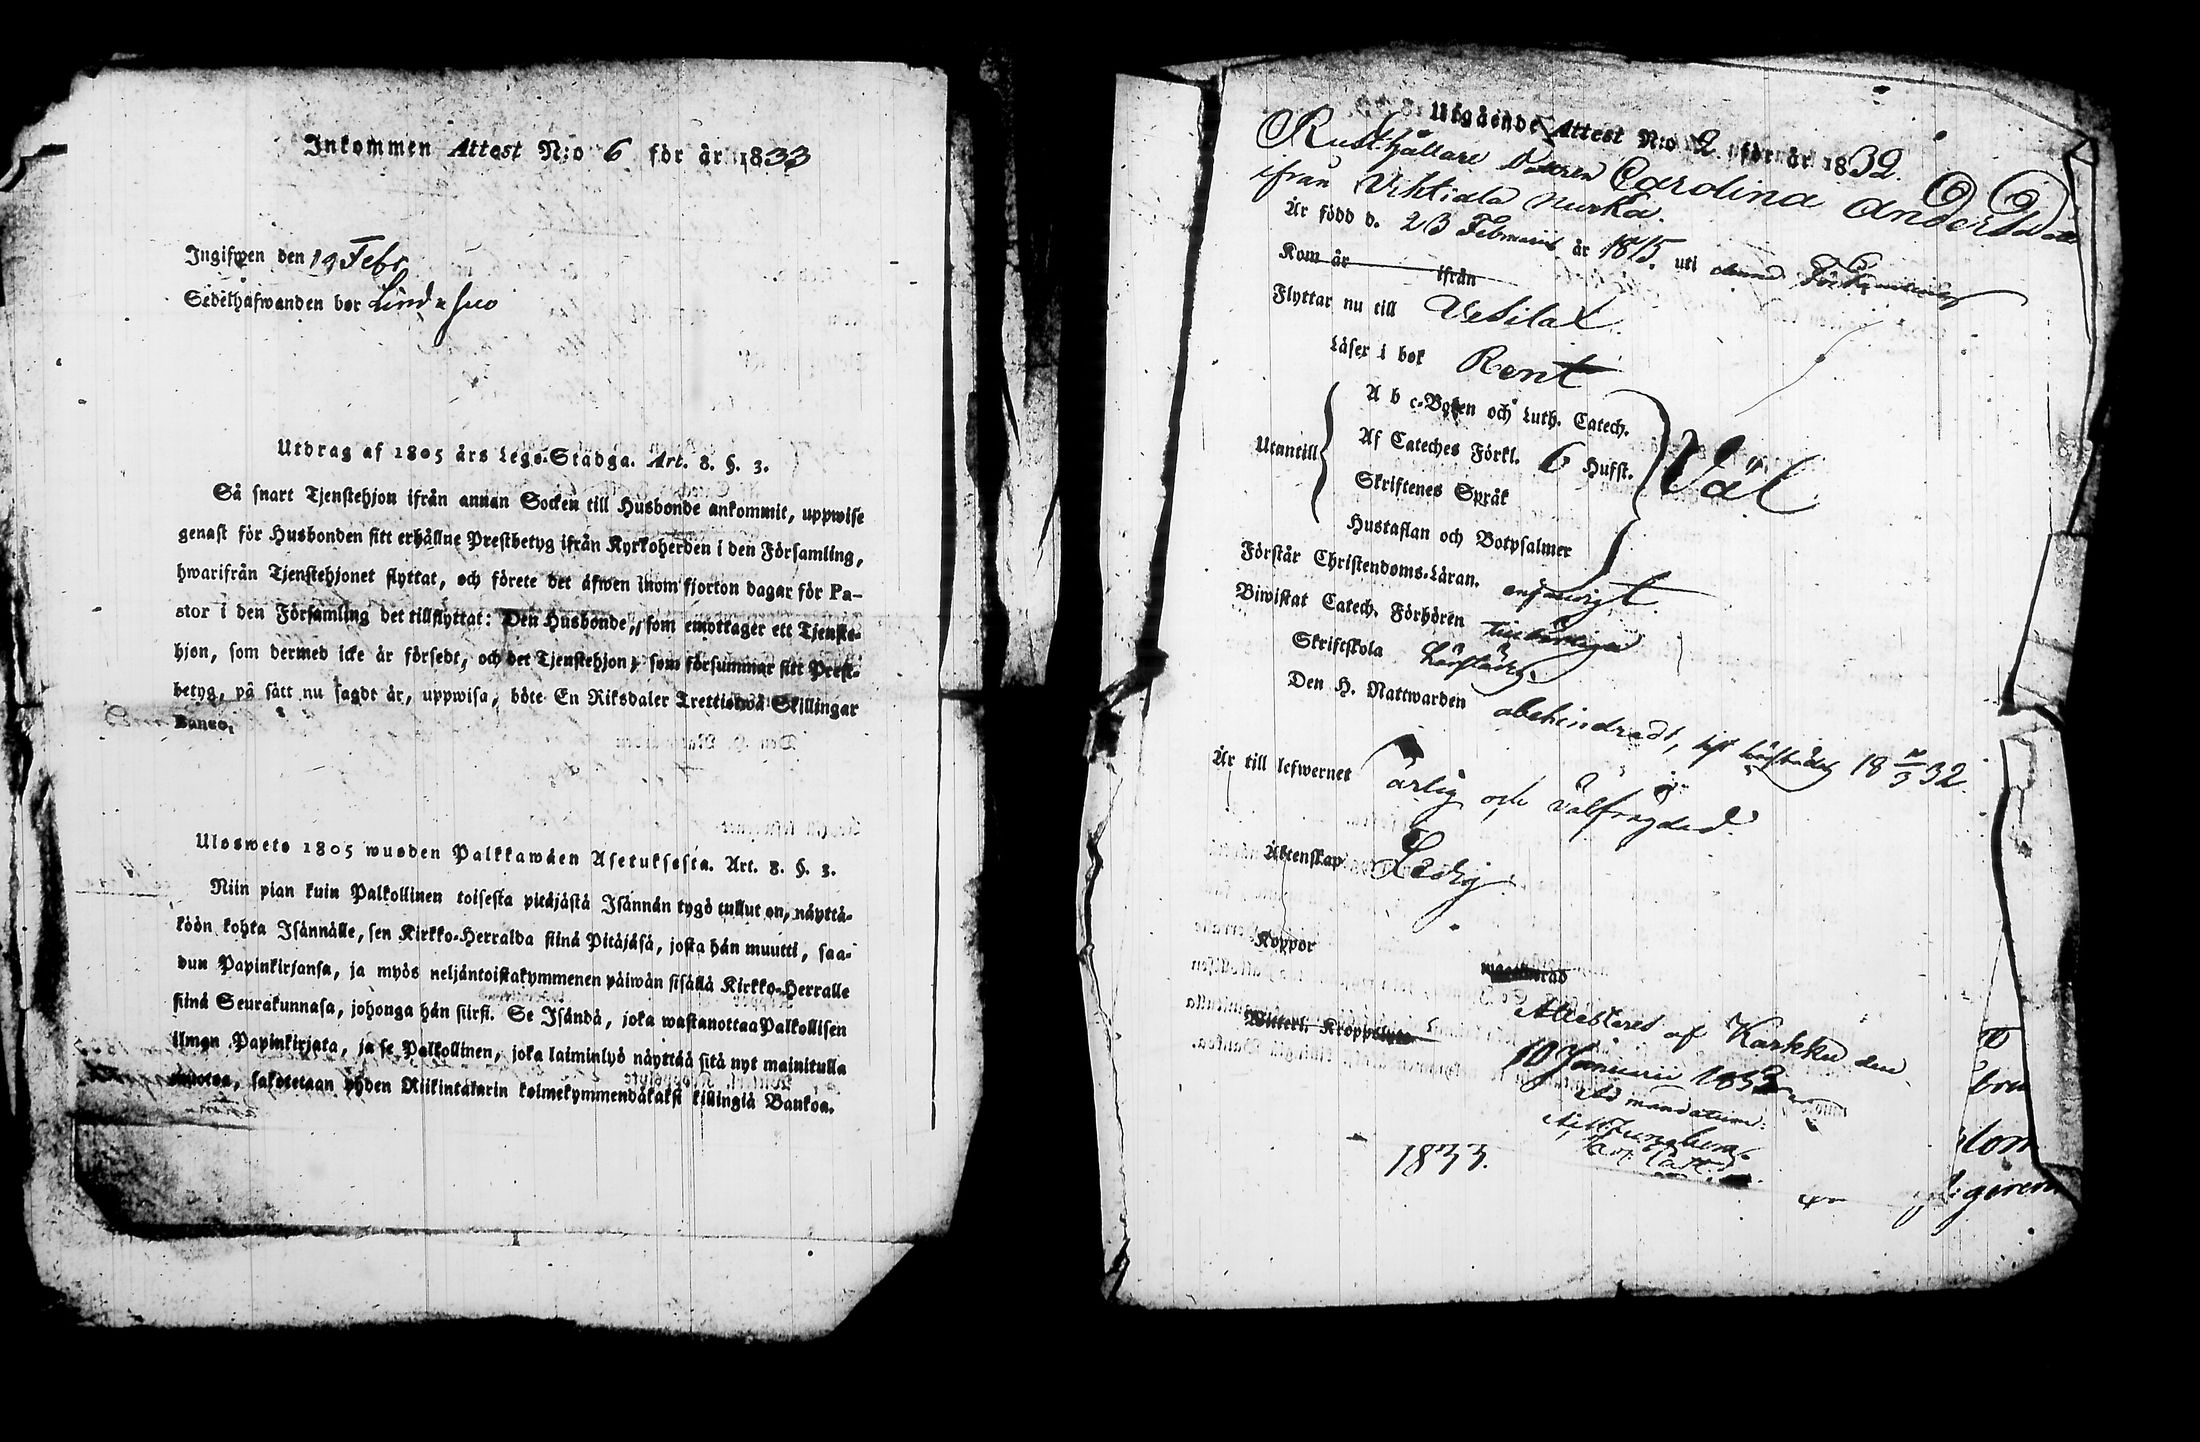 Inkommen Attest N:o 6 för år 1833
Ingifwen den 19 Febr
Sedelhafwanden bor Linda suo
Utdrag af 1805 års Lego-Stadga. Art. 8. §. 3.
Så snart Tjenstehjon ifrån annan Socken till Husbonde ankommit, uppwise
genast för Husbonden sitt erhållne Prestbetyg ifrån Kyrkoherden i den Församling,
hwarifrån Tjenstehjonet flyttat, och förete det äfwen inom fjorton dagar för Pa-
stor i den Församling det tillflyttat: Den Husbonde, som emottager ett Tjenste-
hjon, som dermed icke är försedt, och det Tjenstehjon, som försummar sitt Prest-
betyg, på sätt nu sagdt är, uppwisa, böte En Riksdaler Trettiotwå Skillingar
Banco.
Uloswete 1805 wuoden Palkkawäen Asetuksesta. Art. 8. §. 3.
Niin pian kuin Palkollinen toisesta pitäjästä Isännän tygö tullut on, näyttä-
köön kohta Isännälle, sen Kirkko-Herralda siinä Pitäjäsä, josta hän muutti, saa-
dun Papinkirjansa, ja myös neljäntoistakymmenen päiwän sisällä Kirkko-Herralle
siinä Seurakunnasa, johonga hän siirsi. Se Isändä, joka wastanottaa Palkollisen
ilman Papinkirjata, ja se Palkollinen, joka laiminlyö näyttää sitä nyt mainitulla
muotoa, sakotetaan yhden Riikintalarin kolmekymmendäkaksi killingiä Bankoa.
Utgående Attest N:o 2 för år 1832.
Rusthållare Dottren Carolina Andersd:r
ifrån Vihtiala Nurka.
Är född d. 23 Februarii år 1815. uti denna Församling
Kom år ifrån
Flyttar nu till Vesilax.
Läser i bok Rent
Utantill
A b c-Boken och Luth. Catech.
Af Cateches Förkl. 6 Hufst.
Skriftenes Språk
Hustaflan och Botpsalmer
Väl
Förstår Christendoms-Läran. enfaldigt.
Biwistat Catech. Förhören
Skriftskola
Den H. Nattwarden obehindradt, sist 18 3 32.
Är till lefwernet ärlig och välfrägdad.
Äktenskap Ledig
Koppor
Witterl. Kroppslyte
Attesteras af Karkku den
10 Januarii 1833
Ad mandatum:
1833.